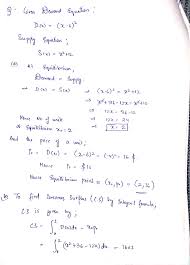 Q. Given Demand Equation;
D(x) = (x-6)²
Supply Equation;
S(x) = x²+12
(a) At Equilibrium,
Demand = Supply
⇒ D(x) = S(x) ⇒ (x-6)² = x²+12
⇒ x²+36-12x = x²+12
⇒ 12x = 24
⇒ x = 2
Hence No of unit
at Equilibrium x = 2
And the price of a unit;
= D(x) = (x-6)² = (2-6)² = 16 $
Hence = 16 $
Hence Equilibrium point = = (2, 16)
(b) To find Consumer Surplus (CS) by Integral formula;
CS is given by;
CS = ∫ D(x)dx -
= ∫ (x²+36-12x)dx -